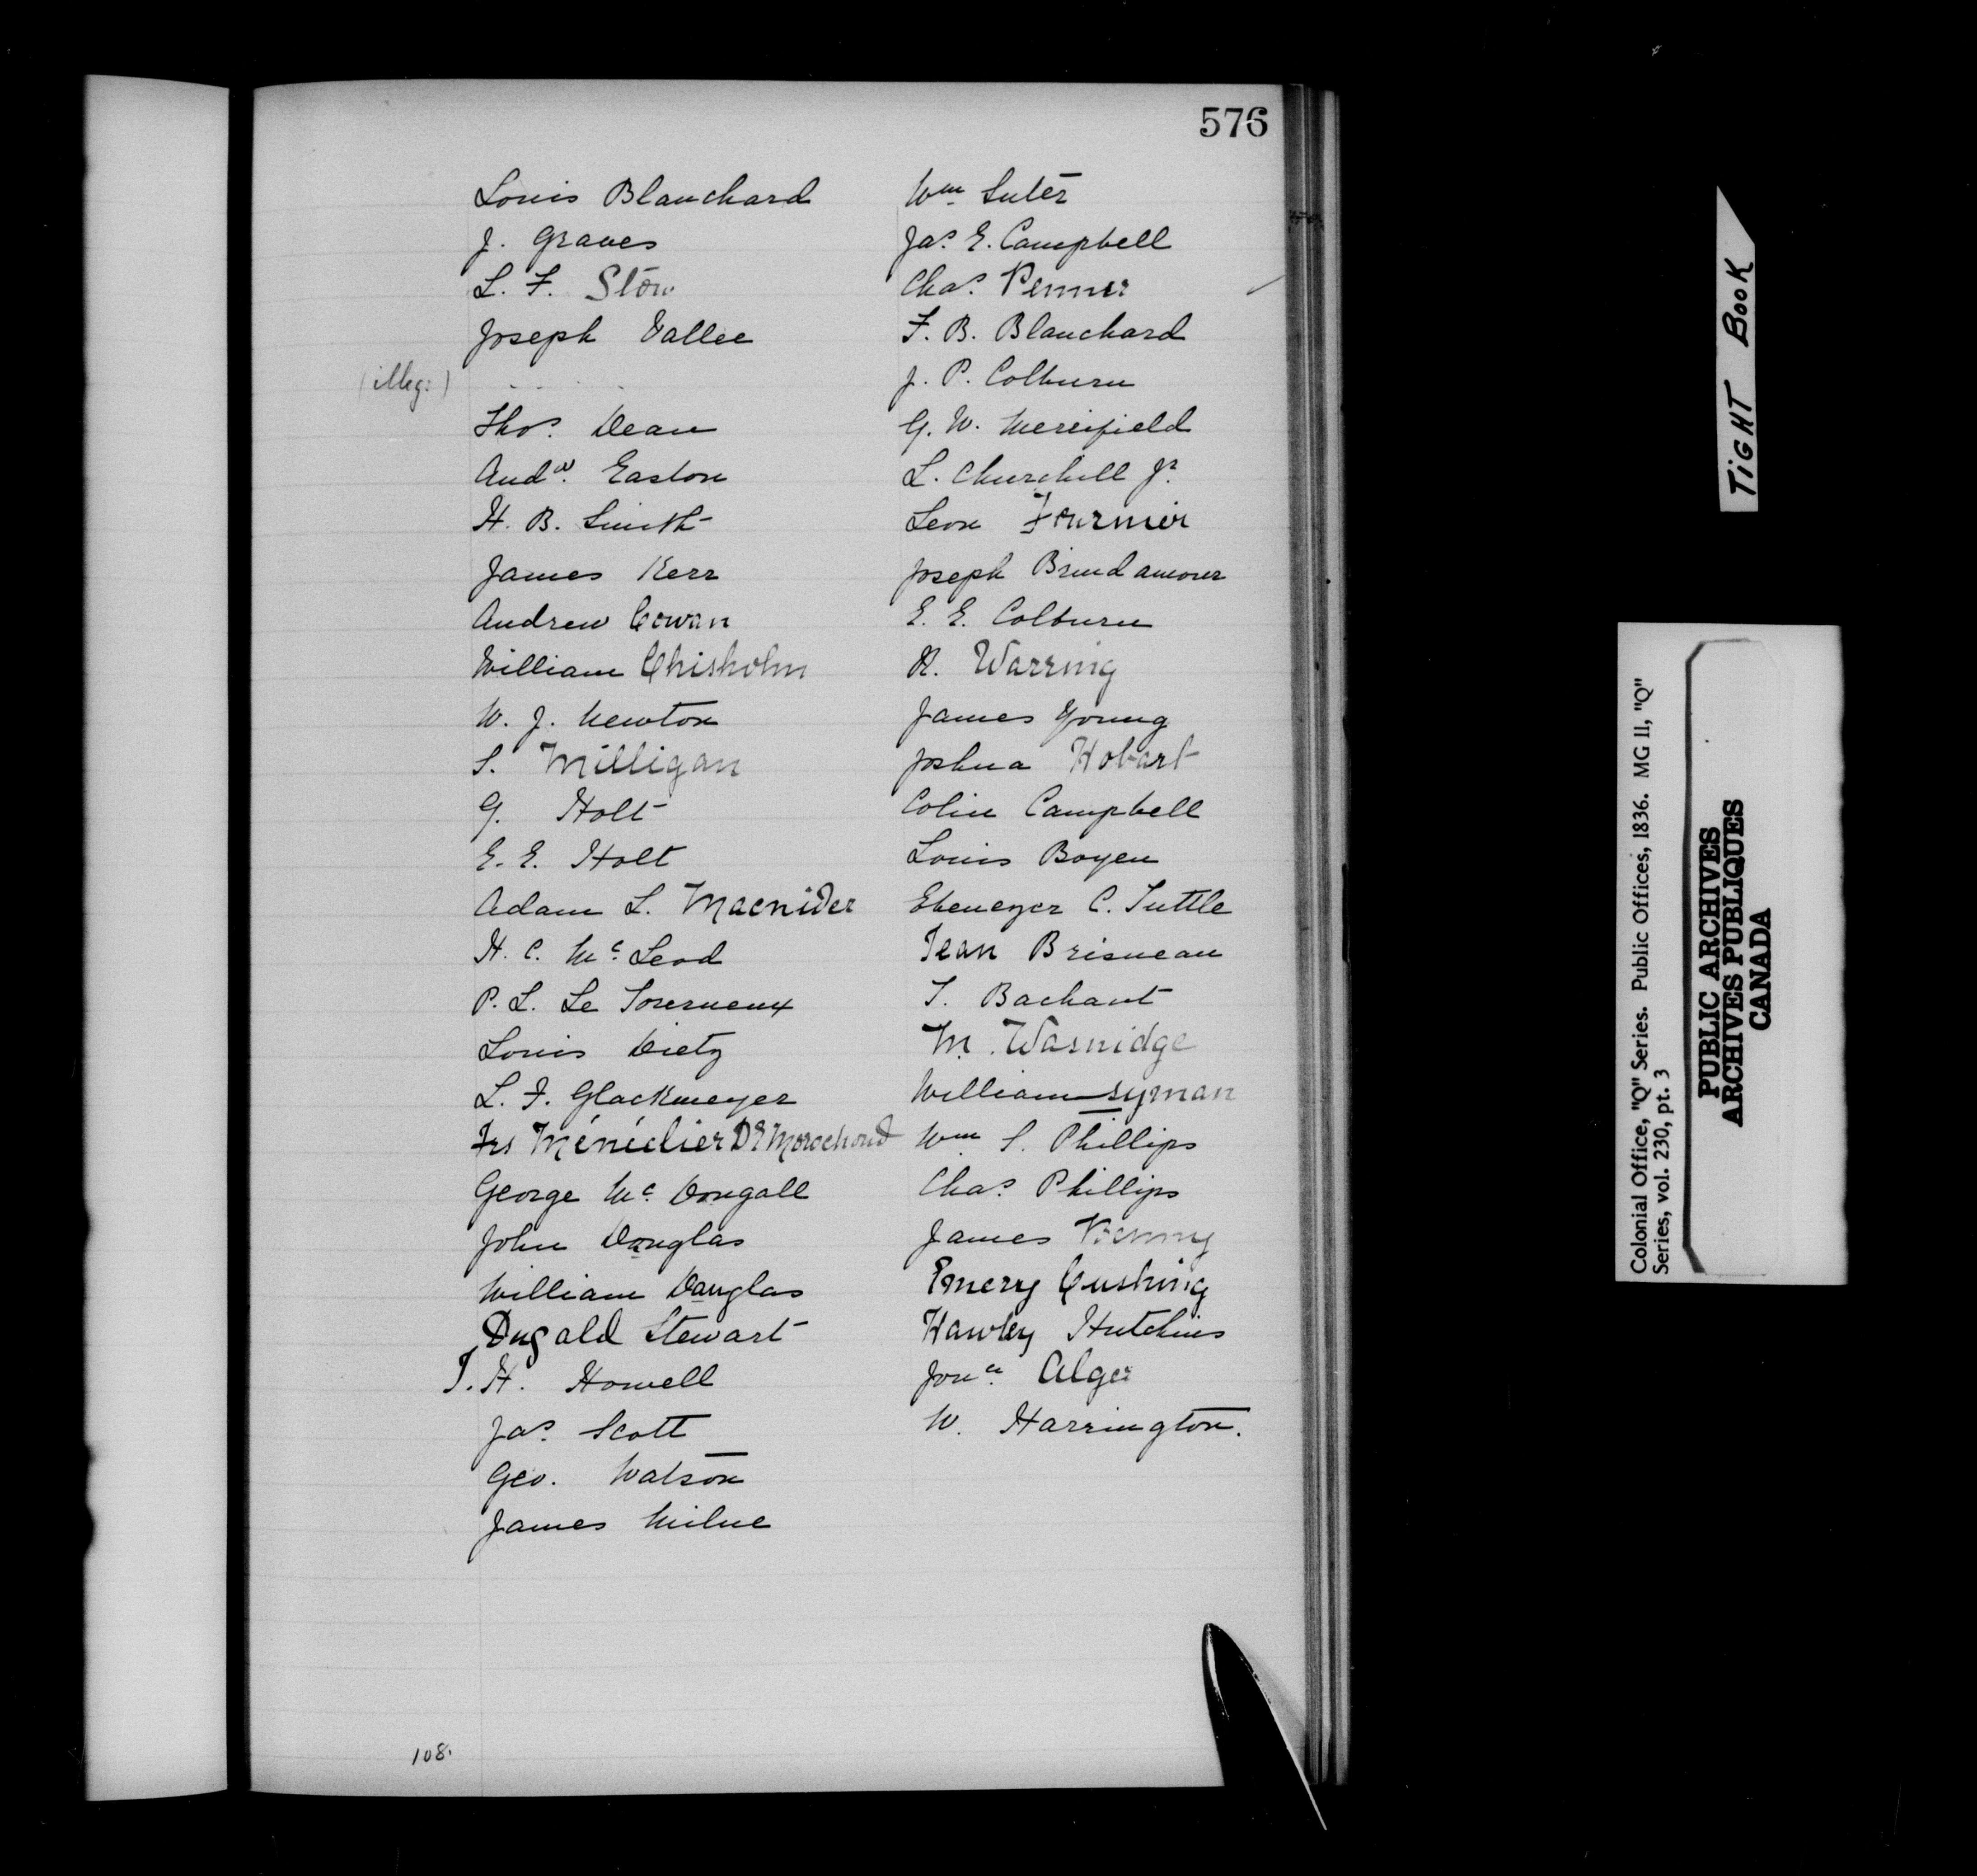 576
Louis Blanchard
J. Graves
L. F. Stow
Joseph Vallee
(illeg:)
Thos. Dean
Andw. Easton
H. B. Smith
James Kerr
Andrew Cowan
William Chisholm
W. J. Newton
S. Milligan
G. Holt
E. E. Holt
Adam L. Macnider
H. C. Mc Leod
P. L. Le Tourneux
Louis Dietz
L. F. Glackmeyer
Frs Ménéclier De Morochond
George Mc Dougall
John Douglas
William Douglas
Dugald Stewart
T. H. Howell
Jas. Scott
Geo. Watson
James Milne
Wm Suter
Jas. E. Campbell
Chas. Penner
F. B. Blanchard
J. P. Colburn
G. W. Merrifield
L. Churchill Jr.
Leon Fournier
Joseph Brindamour
E. E. Colburn
R. Warring
James Young
Joshua Hobart
Colin Campbell
Louis Boyen
Ebenezer C. Tuttle
Jean Brisneau
T. Bachant
M. Wasnidge
William Lyman
Wm S. Phillips
Chas. Phillips
James Benny
Emery Cushing
Hawley Hutchins
Jona. Alger
W. Harrington.
108.
TIGHT BOOK
Colonial Office, "Q" Series. Public Offices, 1836. MG 11, "Q"
Series, vol. 230, pt. 3
PUBLIC ARCHIVES
ARCHIVES PUBLIQUES
CANADA